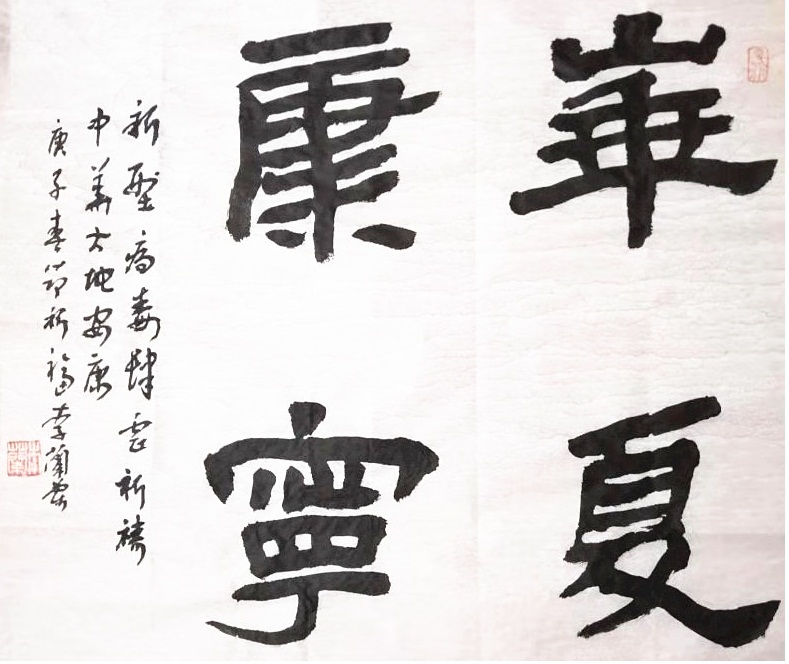 華夏
康寧
新型病毒肆虐祈禱
中華大地安康
庚子春節祈福李蘭